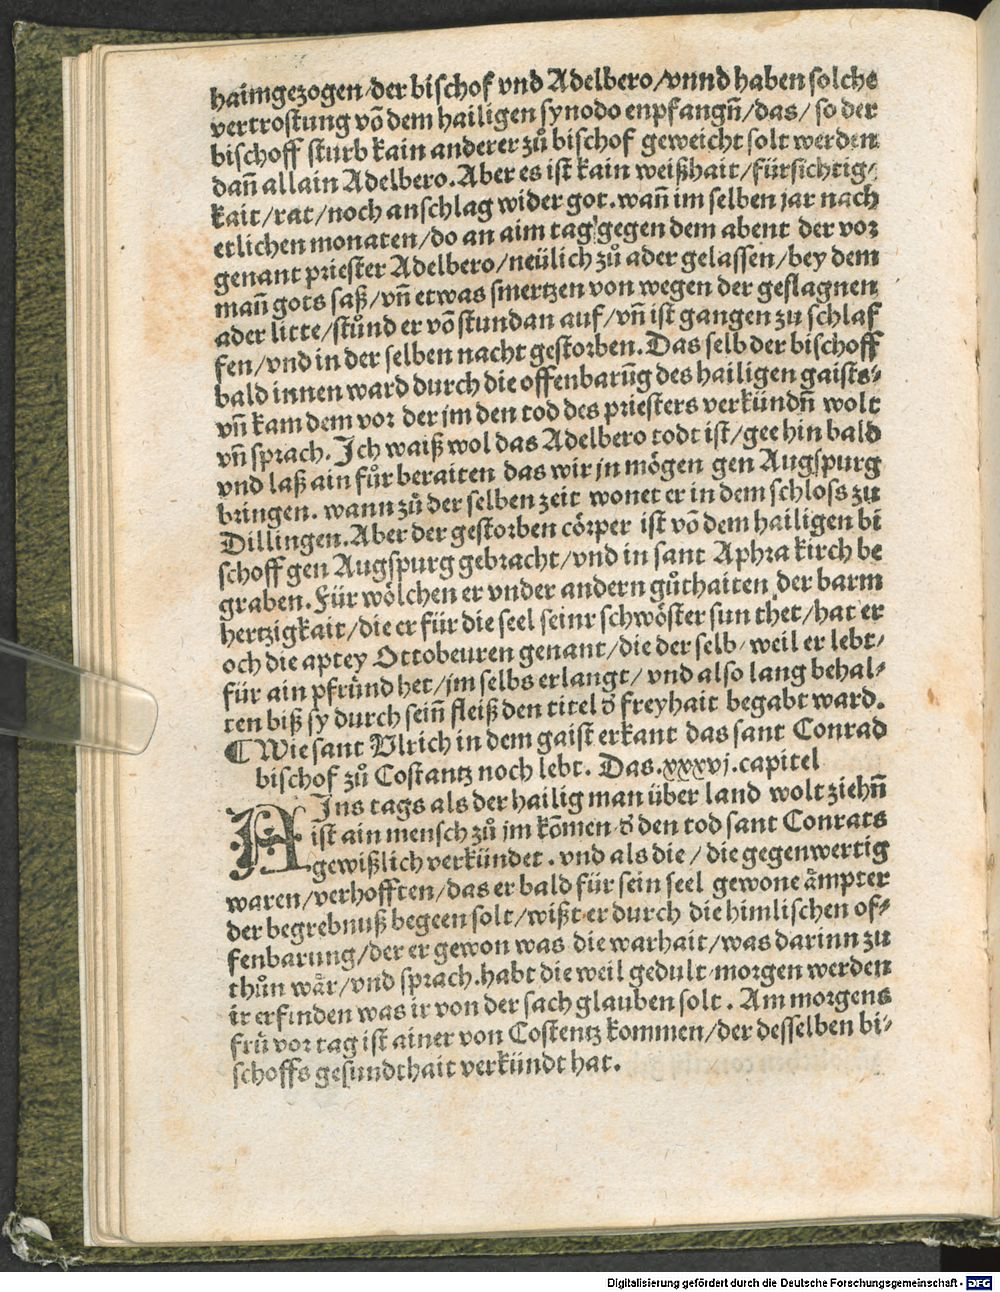 haimgezogen/der bischof vnd Adelbero/vnnd haben solche
vertrostung vō dem hailigen synodo enpfangn̄/das/ so der
bischoff sturb kain anderer zů bischof geweicht solt werden
dan̄ allain Adelbero. Aber es ist kain weißhait/fürsichtig-
kait/rat/noch anschlag wider got. wan̄ im selben jar nach
etlichen monaten/do an aim tag gegen dem abent der vor
genant priester Adelbero/neülich zů ader gelassen/bey dem
man̄ gots saß/vn̄ etwas smertzen von wegen der geslagnen
ader litte/stůnd er vō stundan auf/vn̄ ist gangen zu schlaf
fen/vnd in der selben nacht gestorben. Das selb der bischoff
bald innen ward durch die offenbarūg des hailigen gaists-
vn̄ kam dem vor der jm den tod des priesters verkündn̄ wolt
vn̄ sprach. Ich waiß wol das Adelbero todt ist/gee hin bald
vnd laß ain fůr beraiten das wir jn mögen gen Augspurg
bringen. wann zů der selben zeit wonet er in dem schloss zu
Dillingen. Aber der gestorben cörper ist vō dem hailigen bi
schoff gen Augspurg gebracht/vnd in sant Aphra kirch be
graben. Für wölchen er vnder andern gůthaiten der barm
hertzigkait/die er für die seel seinr schwöster sun thet/hat er
och die aptey Ottobeuren genant/die der selb/weil er lebt/
für ain pfründ het/jm selbs erlangt/ vnd also lang behal-
ten biß sy durch sein̄ fleiß den titel d̄ freyhait begabt ward.
¶ Wie sant Vlrich in dem gaist erkant das sant Conrad
bischof zů Costantz noch lebt. Das .xxxvj. capitel
AIns tags als der hailig man über land wolt ziehn̄
ist ain mensch zů jm kōmen d̄ den tod sant Conrats
gewißlich verkündet. vnd als die/ die gegenwertig
waren/verhofften/das er bald für sein seel gewone åmpter
der begrebnuß begeen solt/wißt er durch die himlischen of-
fenbarung/der er gewon was die warhait/was darinn zu
thůn wår/vnd sprach. habt die weil gedult morgen werden
ir erfinden was ir von der sach glauben solt. Am morgens
frü vor tag ist ainer von Costentz kommen/der desselben bi-
schoffs gesundthait verkündt hat.
Digitalisierung gefördert durch die Deutsche Forschungsgemeinschaft - DFG